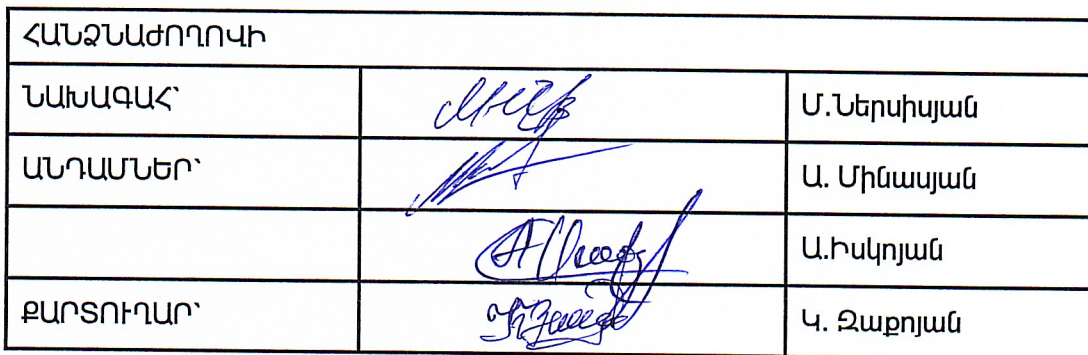 ՀԱՆՁՆԱԺՈՂՈՎԻ
ՆԱԽԱԳԱՀ՝ Մ.Ներսիսյան
ԱՆԴԱՄՆԵՐ՝ Ա. Մինասյան
Ա.Իսկոյան
ՔԱՐՏՈՒՂԱՐ՝ Կ. Զաքոյան